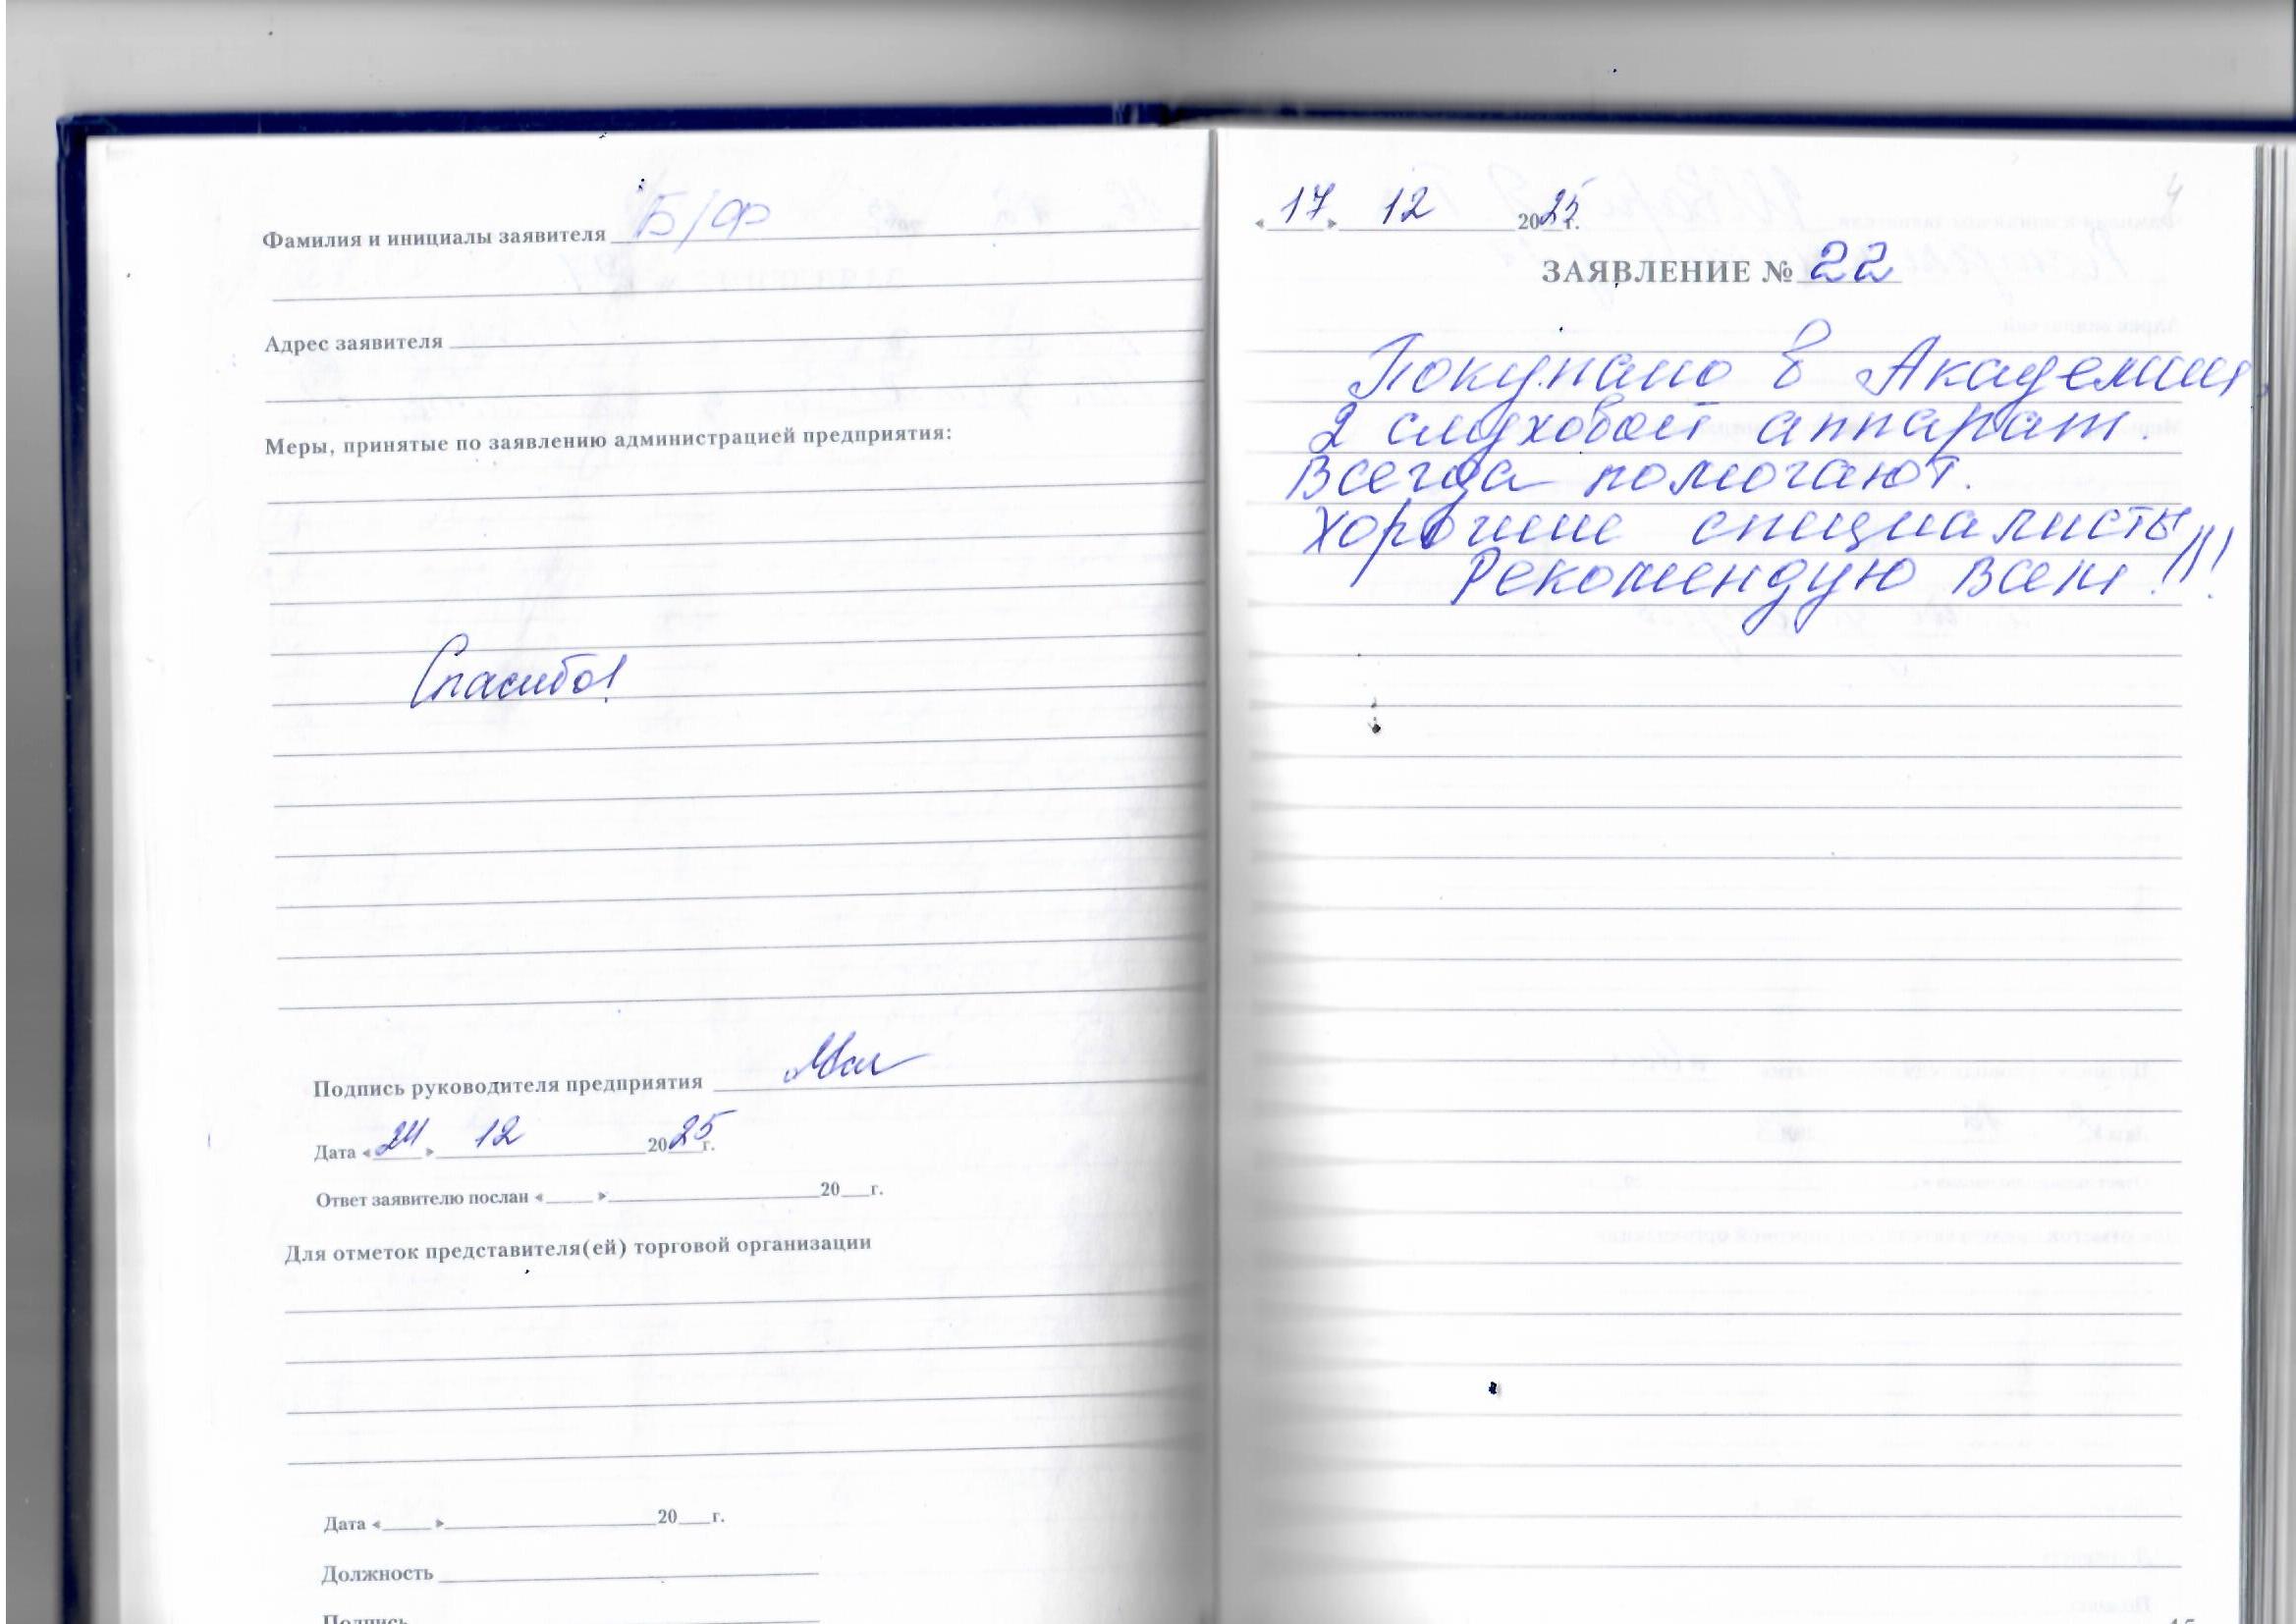 Фамилия и инициалы заявителя Б/Ф
Адрес заявителя
Меры, принятые по заявлению администрацией предприятия:
Спасибо!
Подпись руководителя предприятия
Дата «24» 12 2025г.
Ответ заявителю послан «____» 20___г.
Для отметок представителя(ей) торговой организации
Дата «____» 20___г.
Должность
Подпись
«17» 12 2025г.
ЗАЯВЛЕНИЕ № 22
Покупаю в Академии,
2 слуховой аппарат.
Всегда помогают.
Хорошие специалисты
Рекомендую Всем!!!